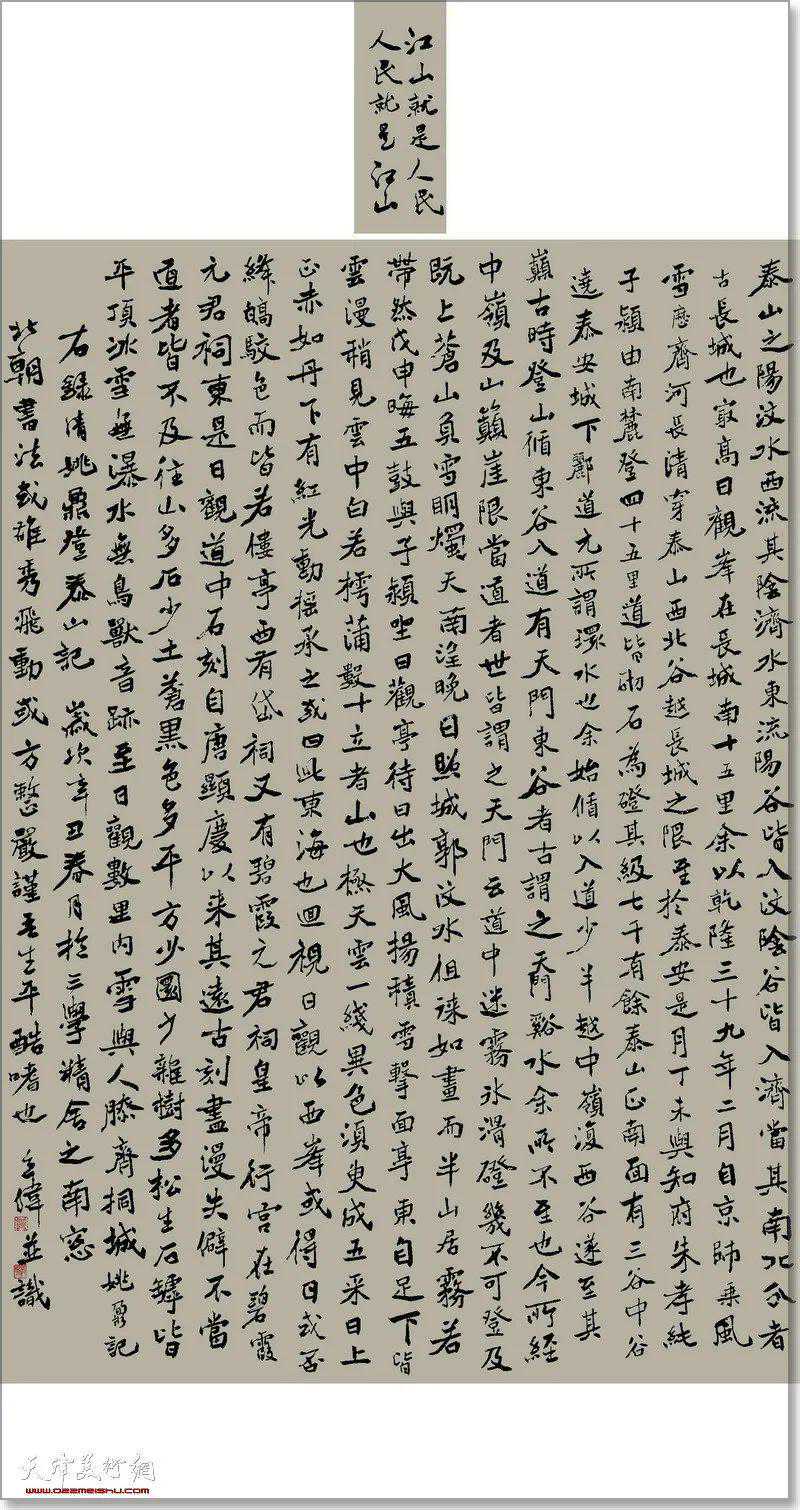 江山就是人民
人民就是江山
泰山之陽汶水西流其陰濟水東流陽谷皆入汶陰谷皆入濟當其南北分者
古長城也冣高日觀峯在長城南十五里余以乾隆三十九年二月自京師乘風
雪歷齊河長清穿泰山西北谷越長城之限至於泰安是月丁未與知府朱孝純
子潁由南麓登四十五里道皆砌石為磴其級七千有餘泰山正南面有三谷中谷
遶泰安城下酈道元所謂環水也余始循以入道少半越中嶺復西谷遂至其
巔古時登山循東谷入道有天門東谷者古謂之天門谿水余所不至也今所經
中嶺及山巔崖限當道者世皆謂之天門云道中迷霧冰滑磴幾不可登及
既上蒼山負雪明燭天南望晚日照城郭汶水徂徠如畫而半山居霧若
帶然戊申晦五鼓與子潁坐日觀亭待日出大風揚積雪擊面亭東自足下皆
雲漫稍見雲中白若樗蒲數十立者山也極天雲一綫異色須臾成五采日上
正赤如丹下有紅光動搖承之或曰此東海也迴視日觀以西峯或得日或否
絳皜駁色而皆若僂亭西有岱祠又有碧霞元君祠皇帝行宮在碧霞
元君祠東是日觀道中石刻自唐顯慶以來其遠古刻盡漫失僻不當
道者皆不及往山多石少土蒼黑色多平方少圜少雜樹多松生石罅皆
平頂冰雪無瀑水無鳥獸音跡至日觀數里內雪與人膝齊桐城姚鼐記
右錄清姚鼐登泰山記 歲次辛丑春月於三學精舍之南窗
北朝書法或雄秀飛動或方整嚴謹吾生平酷嗜也 偉並識
天津美術網
www.022meishu.com